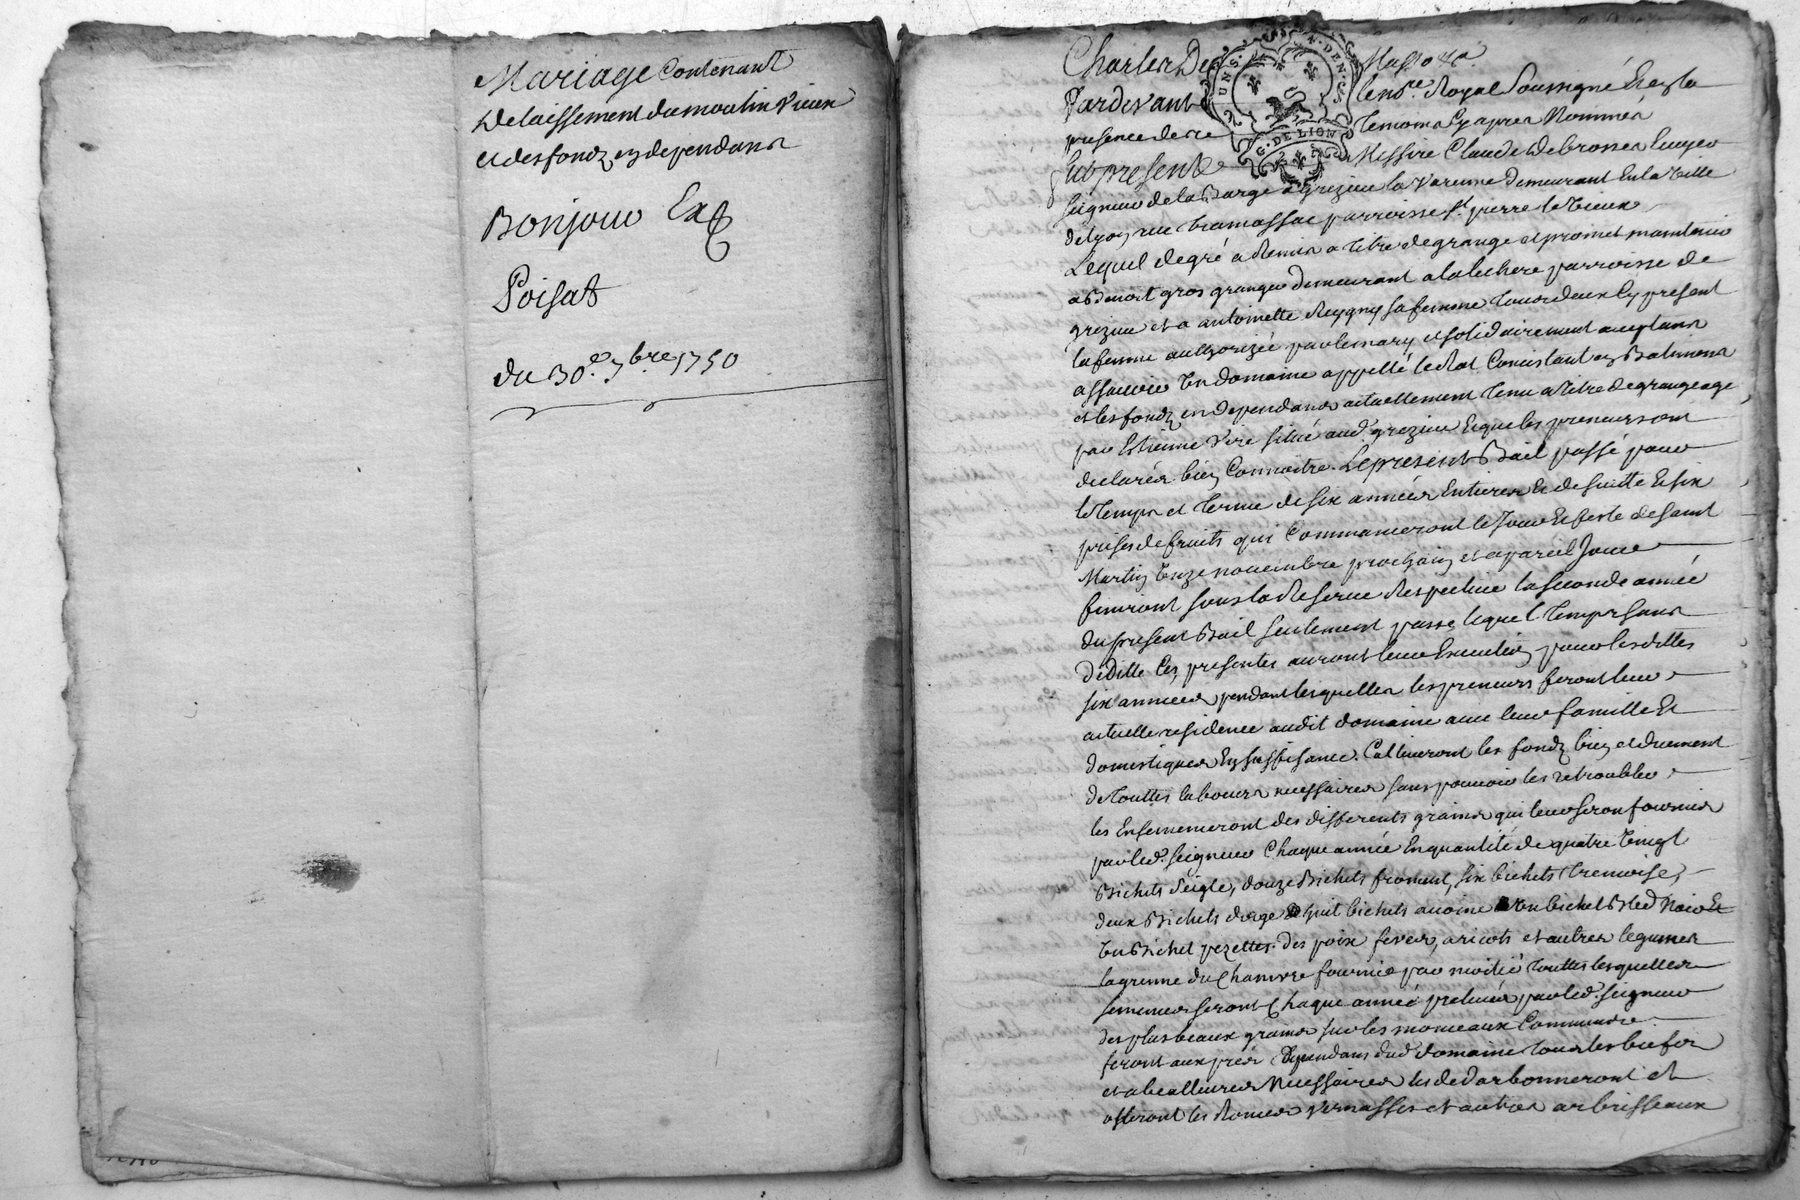 Mariage Contenant
Delaissement du moulin Vieux
et des fondz en dependans
Bonjour Ex
Poisat
du 30.e 7bre 1750
Charles De
Pardevant le no.re Royal Soussigné Et en la
presence des temoins Cy apres Nommés
fut present Messire Claude Debrosses Ecuyer
seigneur de la Barge a grezieu la Varenne demeurant En la Ville
de lyon rue tramassac parroisse st. pierre le Vieux
Lequel de gré a Remis a titre de grange et promet maintenir
a Benoit gros granger demeurant a la lechere parroisse de
grezieu et a antoinette Reygny sa femme tous deux Cy present
la femme authorizée par le mary et solidairement acceptans
assavoir Un domaine appellé le Rat Consistant en Batimens
et les fondz en dependans actuellement tenu a titre de grangeage
par Estienne Vire situé aud. grezieu Lequel les preneurs ont
declarés bien Connoitre. Le present Bail passé pour
le temps et terme de six années Entieres Et de suitte Et six
prises de fruits qui Commanceront le Jour Et feste de saint
Martin Unze novembre prochain et a pareil Jour
finiront sous la Reserve Respective la seconde année
du present Bail seulement passé lequel temps sans
déditte Ces presentes auront leur Execution pour lesdittes
six années pendant lesquelles les preneurs feront leur
actuelle residence audit domaine avec leur famille Et
domestiques En suffisance. Cultiveront les fondz bien et duement
de touttes labours necessaires sans pouvoir les retroubler
les Ensemenceront des differents grains qui leur seront fournis
par led. seigneur Chaque année En quantité de quatre Vingt
Bichets seigle, douze Bichets froment, six bichets tremoise,
deux Bichets d'orge huit bichets avoine Un bichet Bled Noir Et
Un Bichet pezettes. des poix feves, aricots et autres legumes
la grenne du Chanvre fournie par moitié touttes lesquelles
semences seront Chaque année prelevées par led. seigneur
des plus beaux grains sur les monceaux Communs.
feront aux préz dependans dud. domaine tous les biefs
et abealleures Necessaires les dedarbonneront et
osteront les Ronces Vernasses et autres arbrisseaux